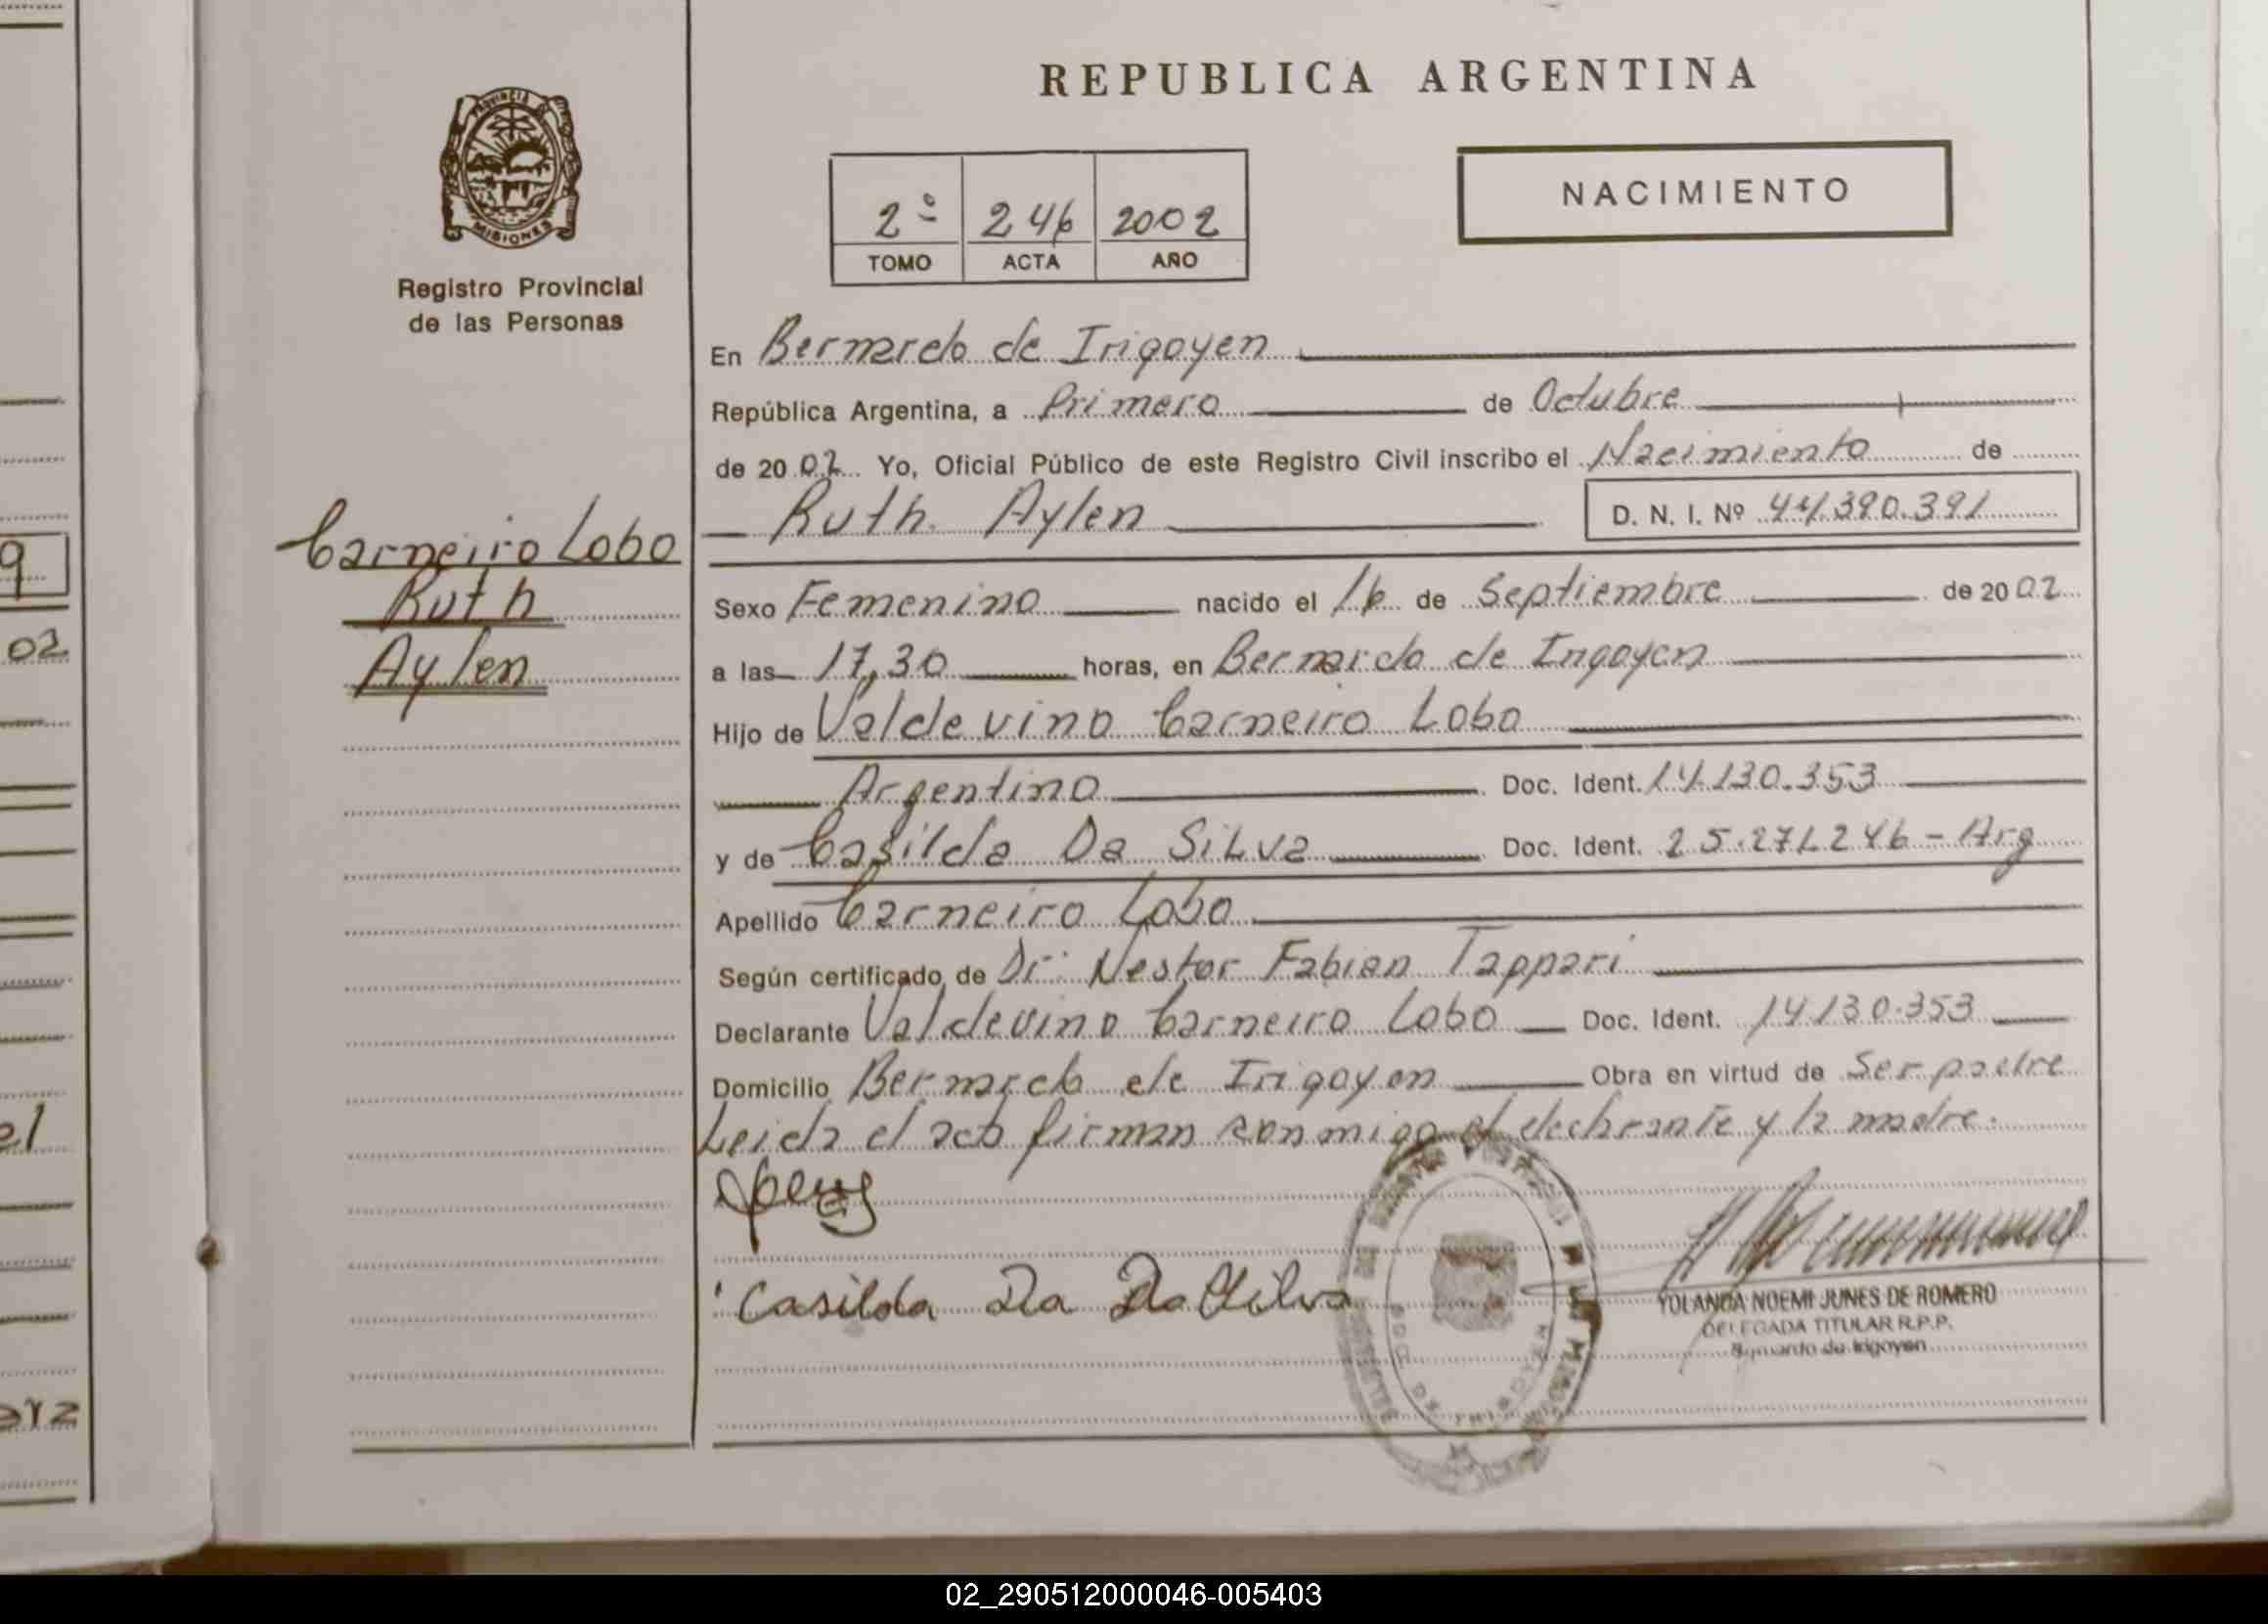 REPUBLICA ARGENTINA
PROVINCIA DE
MISIONES
Registro Provincial
de las Personas
2º 246 2002
TOMO ACTA AÑO
NACIMIENTO
En Bernardo de Irigoyen
República Argentina, a Primero de Octubre
de 2002 Yo, Oficial Público de este Registro Civil inscribo el Nacimiento de
Ruth Aylen D. N. I. Nº 44.390.391
Carneiro Lobo
Ruth
Aylen
Sexo Femenino nacido el 16 de Septiembre de 2002
a las 17,30 horas, en Bernardo de Irigoyen
Hijo de Valdevino Carneiro Lobo
Argentino Doc. Ident. 14.130.353
y de Casilda Da Silva Doc. Ident. 25.271.246 - Arg
Apellido Carneiro Lobo
Según certificado de Dr: Nestor Fabian Tappari
Declarante Valdevino Carneiro Lobo Doc. Ident. 14.130.353
Domicilio Bernardo de Irigoyen Obra en virtud de Ser padre
Leida el acta firman conmigo el declarante y la madre.
Casilda Da Da Silva
YOLANDA NOEMI JUNES DE ROMERO
DELEGADA TITULAR R.P.P.
Bernardo de Irigoyen
BDO. DE IRIGOYEN
9
02
el
02_290512000046-005403